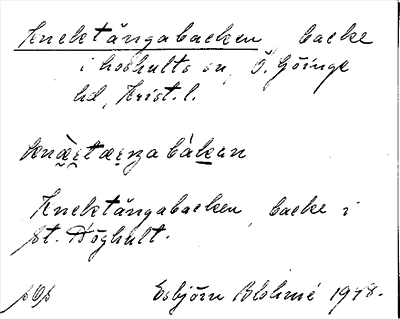 Knektängabacken backe
i Loshults sn, Ö. Göinge
hd, Krist. l.
Knektängabacken, backe i
St. Höghult.
Esbjörn Blohmé 1948.